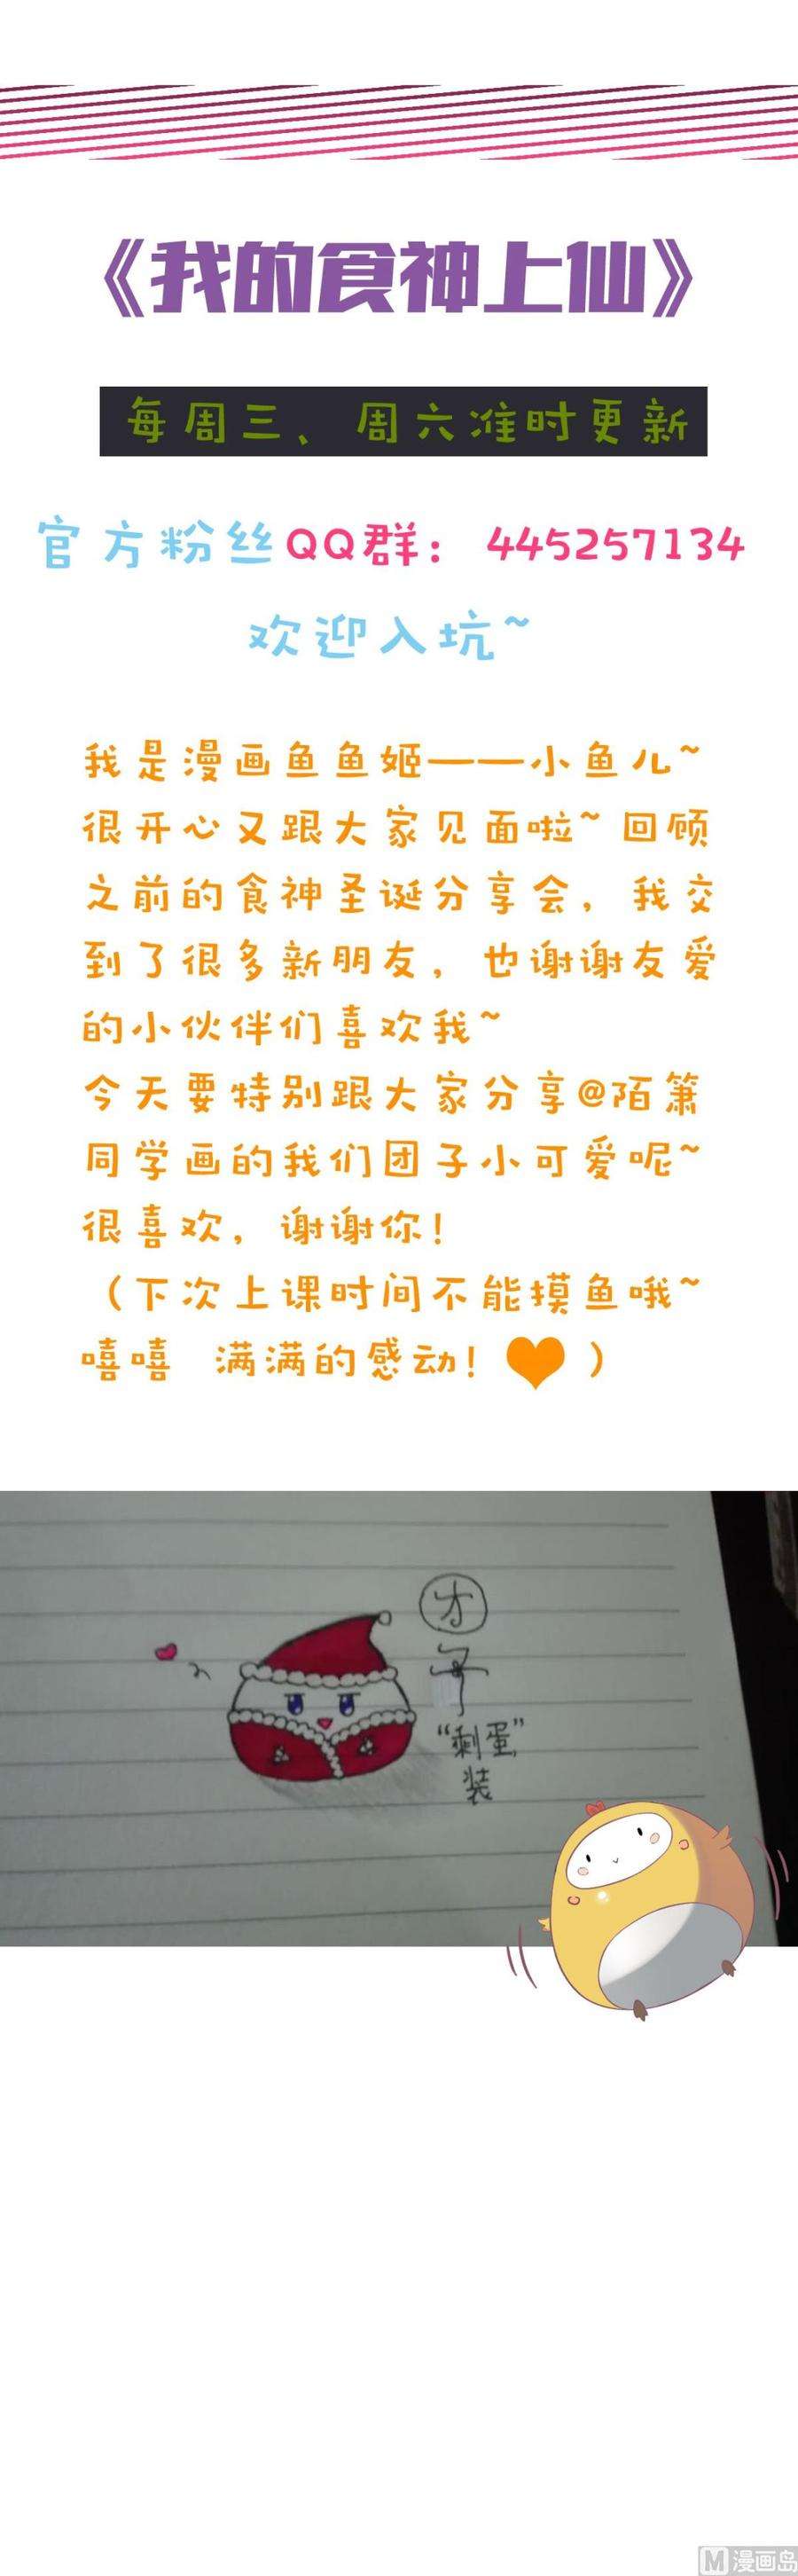 《我的食神上仙》
每周三、周六准时更新
官方粉丝QQ群：445257134
欢迎入坑~
我是漫画鱼鱼姬——小鱼儿~
很开心又跟大家见面啦~回顾
之前的食神圣诞分享会，我交
到了很多新朋友，也谢谢友爱
的小伙伴们喜欢我~
今天要特别跟大家分享@陌箫
同学画的我们团子小可爱呢~
很喜欢，谢谢你！
（下次上课时间不能摸鱼哦~
嘻嘻 满满的感动！❤）
团
子
“剩蛋”
装
M漫画岛